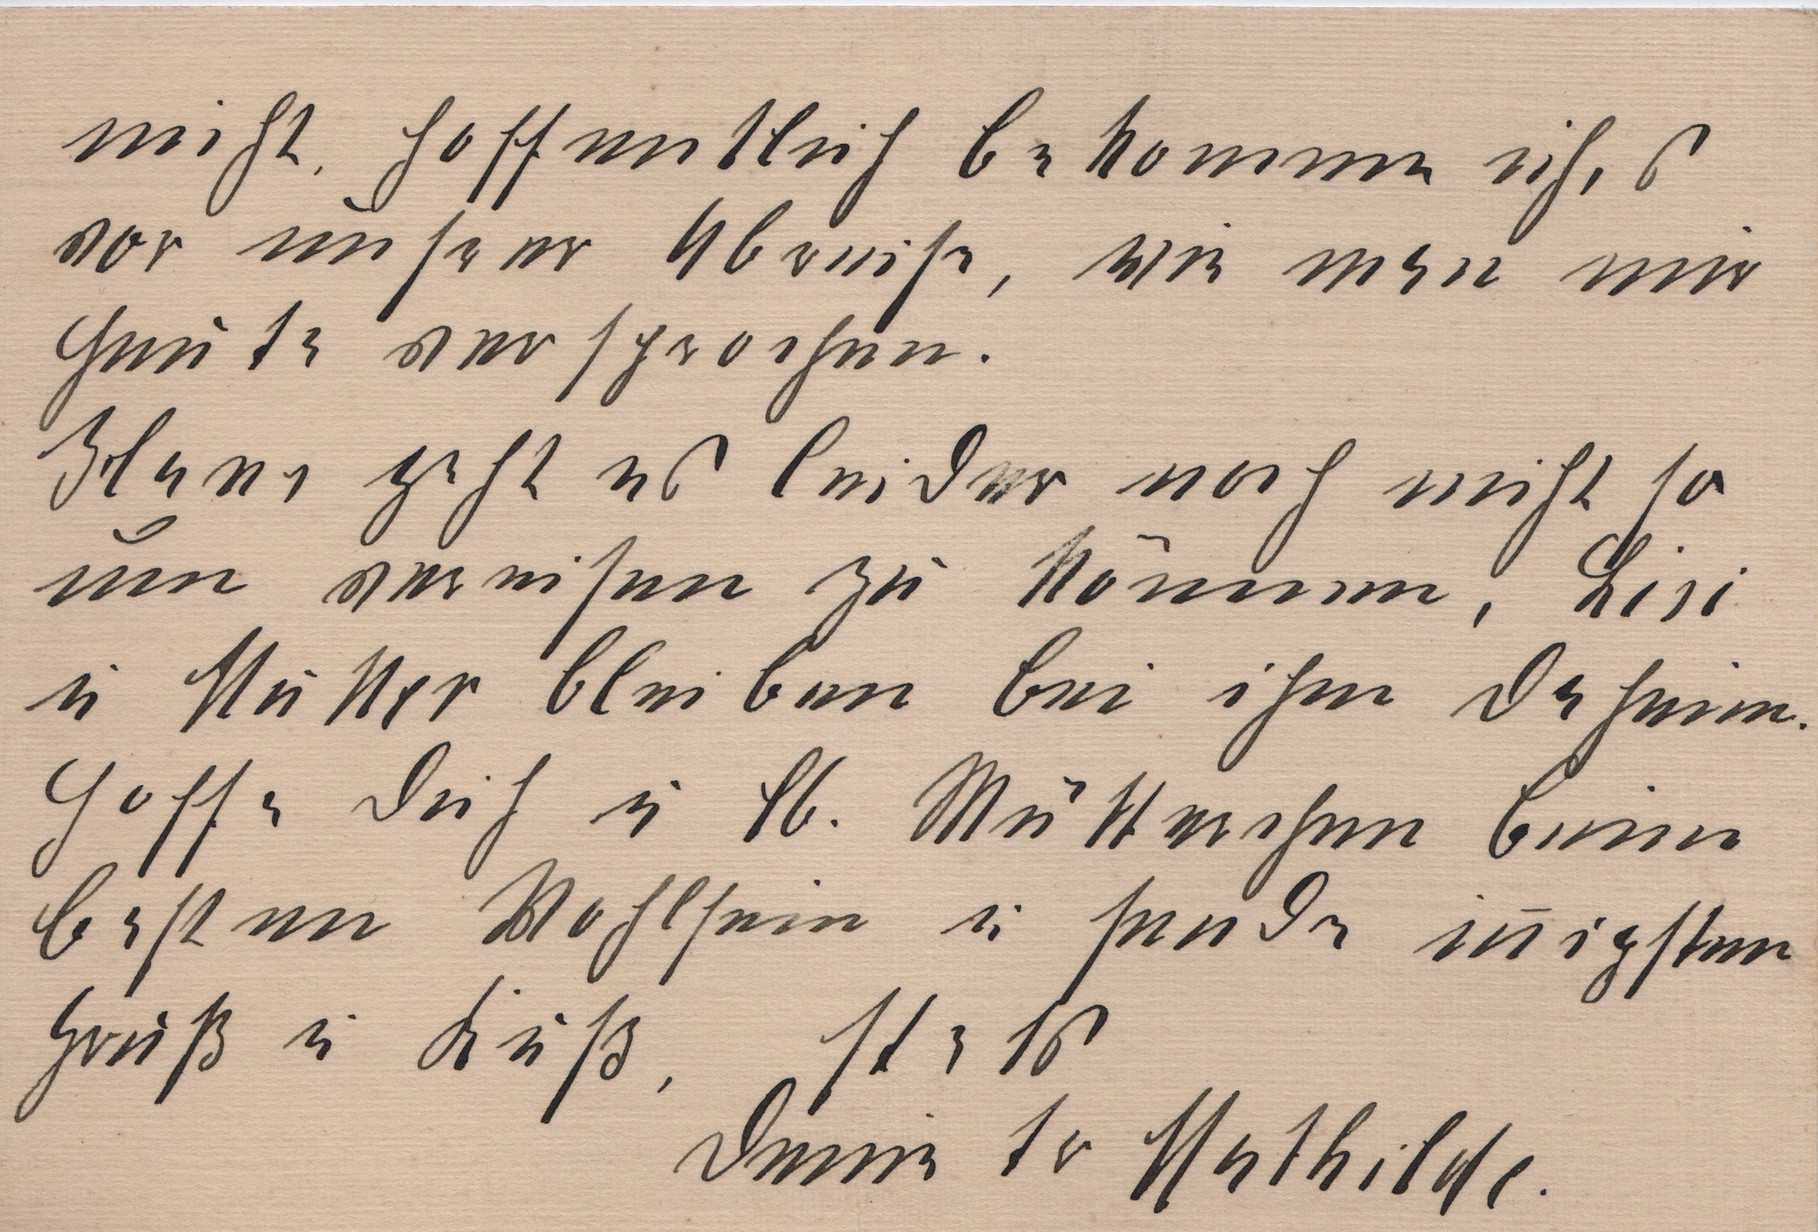 nicht. Hoffentlich bekomme ich,s
vor unserer Abreise, wie man mir
heute versprochen.
geht es leider noch nicht so
um verreisen zu können, Lisi
u Mutter bleiben bei ihm daheim.
Hoffe Dich u lb. Mutterchen beim
besten Wohlsein u sende in̄igsten
Gruß u Kuß, stets
Deine tr Mathilde.